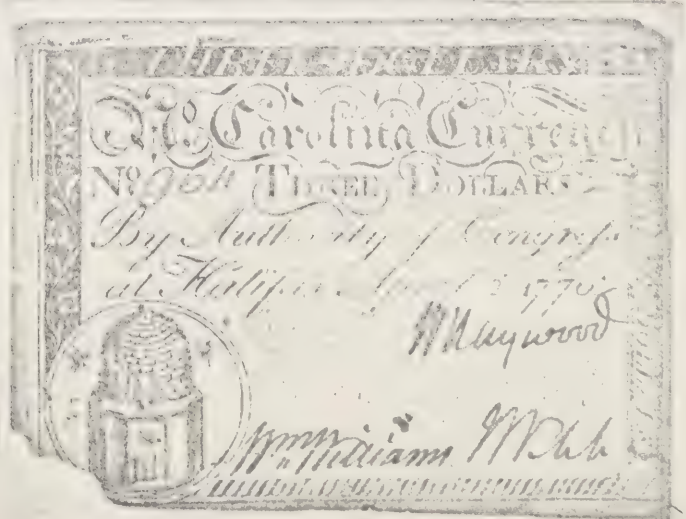 THREE DOLLARS
Nº Carolina Currency
Nº THREE DOLLARS
By Authority of Congress
at Halifax April 2 1776
W Haywood
Wm Williams